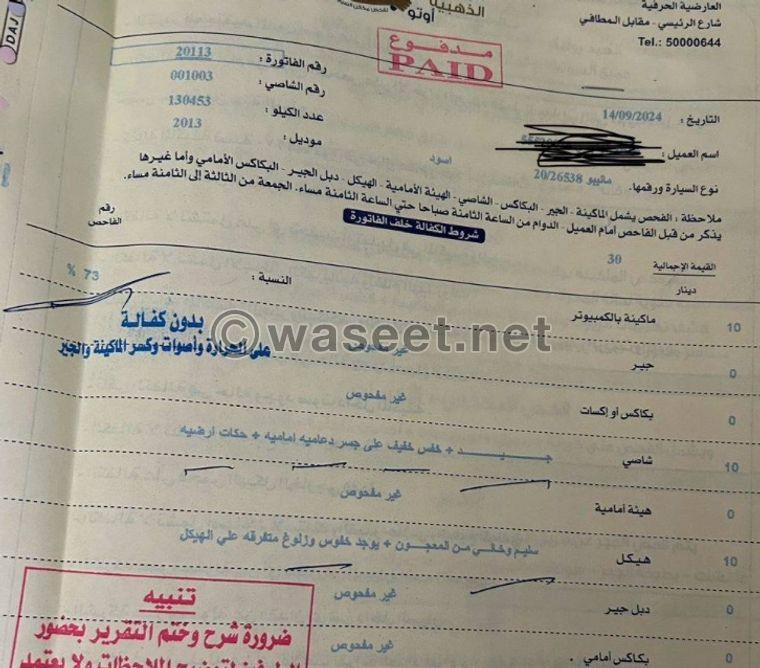 العارضية الحرفية
شارع الرئيسي - مقابل المطافي
Tel.: 50000644
الذهبية
أوتو
DAJ
مدفوع
PAID
رقم الفاتورة : 20113
رقم الشاصي : 001003
عدد الكيلو : 130453
موديل : 2013
التاريخ : 14/09/2024
اسم العميل :
نوع السيارة ورقمها. ماليبو 20/26538 اسود
ملاحظة : الفحص يشمل الماكينة - الجير - البكاكس - الشاصي - الهيئة الأمامية - الهيكل - دبل الجير - البكاكس الأمامي وأما غيرها
يذكر من قبل الفاحص أمام العميل - الدوام من الساعة الثامنة صباحا حتي الساعة الثامنة مساء. الجمعة من الثالثة إلى الثامنة مساء.
شروط الكفالة خلف الفاتورة
رقم الفاحص
القيمة الإجمالية 30
دينار
10 ماكينة بالكمبيوتر النسبة : 73 %
بدون كفالة
على الحرارة وأصوات وكسر الماكينة والجير
©waseet.net
0 جير غير مفحوص
0 بكاكس أو إكسات غير مفحوص
10 شاصي جيـــــد + خفس خفيف على جسر دعاميه اماميه + حكات ارضيه
0 هيئة أمامية غير مفحوص
10 هيكل سليم وخالي من المعجون + يوجد خفوس وزلوغ متفرقه علي الهيكل
0 دبل جير غير مفحوص
0 بكاكس أمامي . غير مفحوص
تنبيه
ضرورة شرح وختم التقرير بحضور